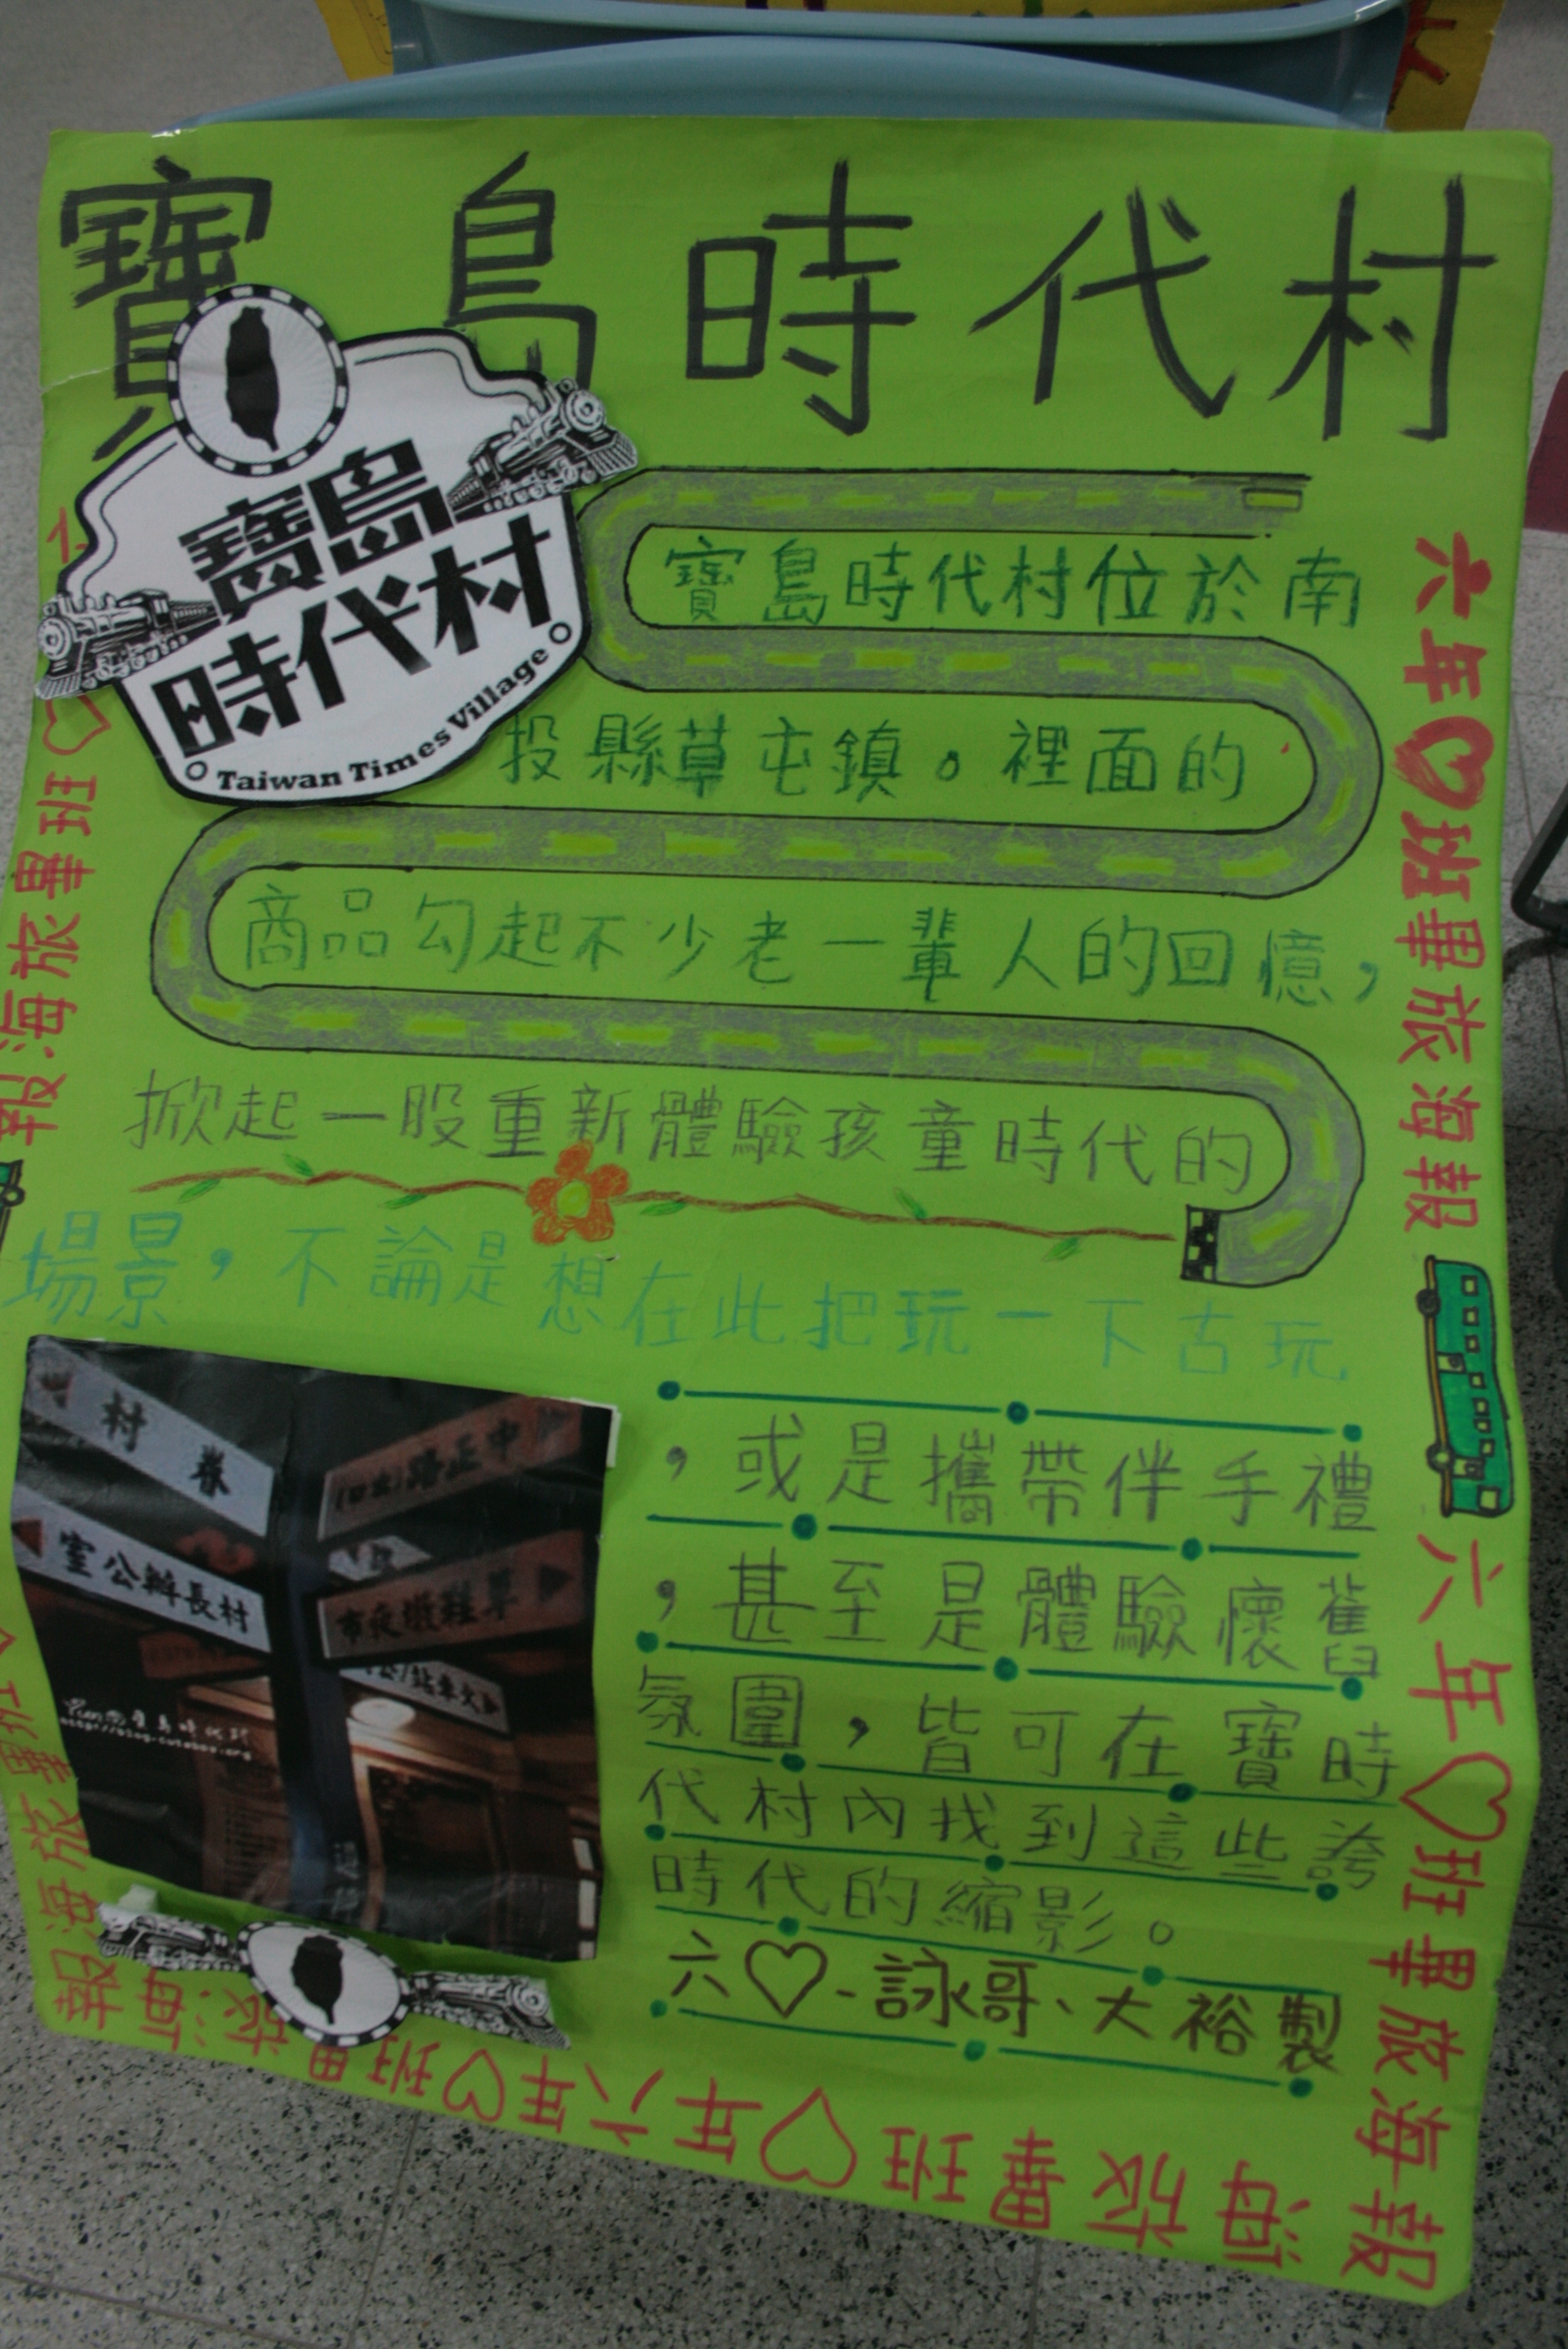 寶島時代村
寶島
時代村
Taiwan Times Village
寶島時代村位於南
投縣草屯鎮。裡面的
商品勾起不少老一輩人的回憶,
掀起一股重新體驗孩童時代的
場景,不論是想在此把玩一下古玩
,或是攜帶伴手禮
,甚至是體驗懷舊
氛圍,皆可在寶時
代村內找到這些誇
時代的縮影。
六♡-詠哥、大裕製
村 眷
室公辦長村
中正路
草鞋墩夜市
六年♡班畢旅海報
六年♡班畢旅海報
♡班畢旅海報
班畢旅海報
六年♡班畢旅海報
六年♡班畢旅海